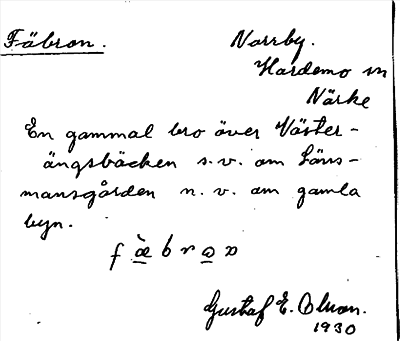 Fäbron.
Norrby.
Hardemo sn
Närke
En gammal bro över Väster-
ängsbäcken s.v. om Läns-
mansgården n.v. om gamla
byn.
Gustaf E. Olsson.
1930